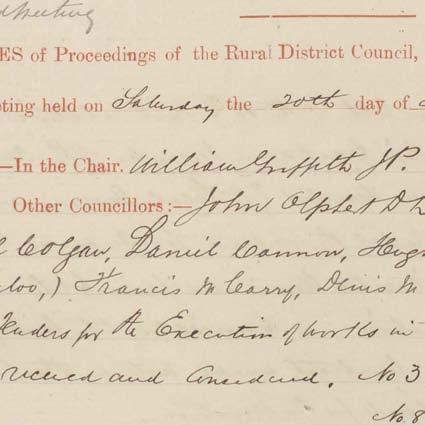 Meeting
ES of Proceedings of the Rural District Council,
eting held on Saturday the 20th day of
—In the Chair. William Griffith J.P.
Other Councillors:— John Olphet D
Colgan, Daniel Cannon, Hug
loo,) Francis McCarry, Denis M
Tenders for the Execution of works in
received and considered. No 3
No. 8